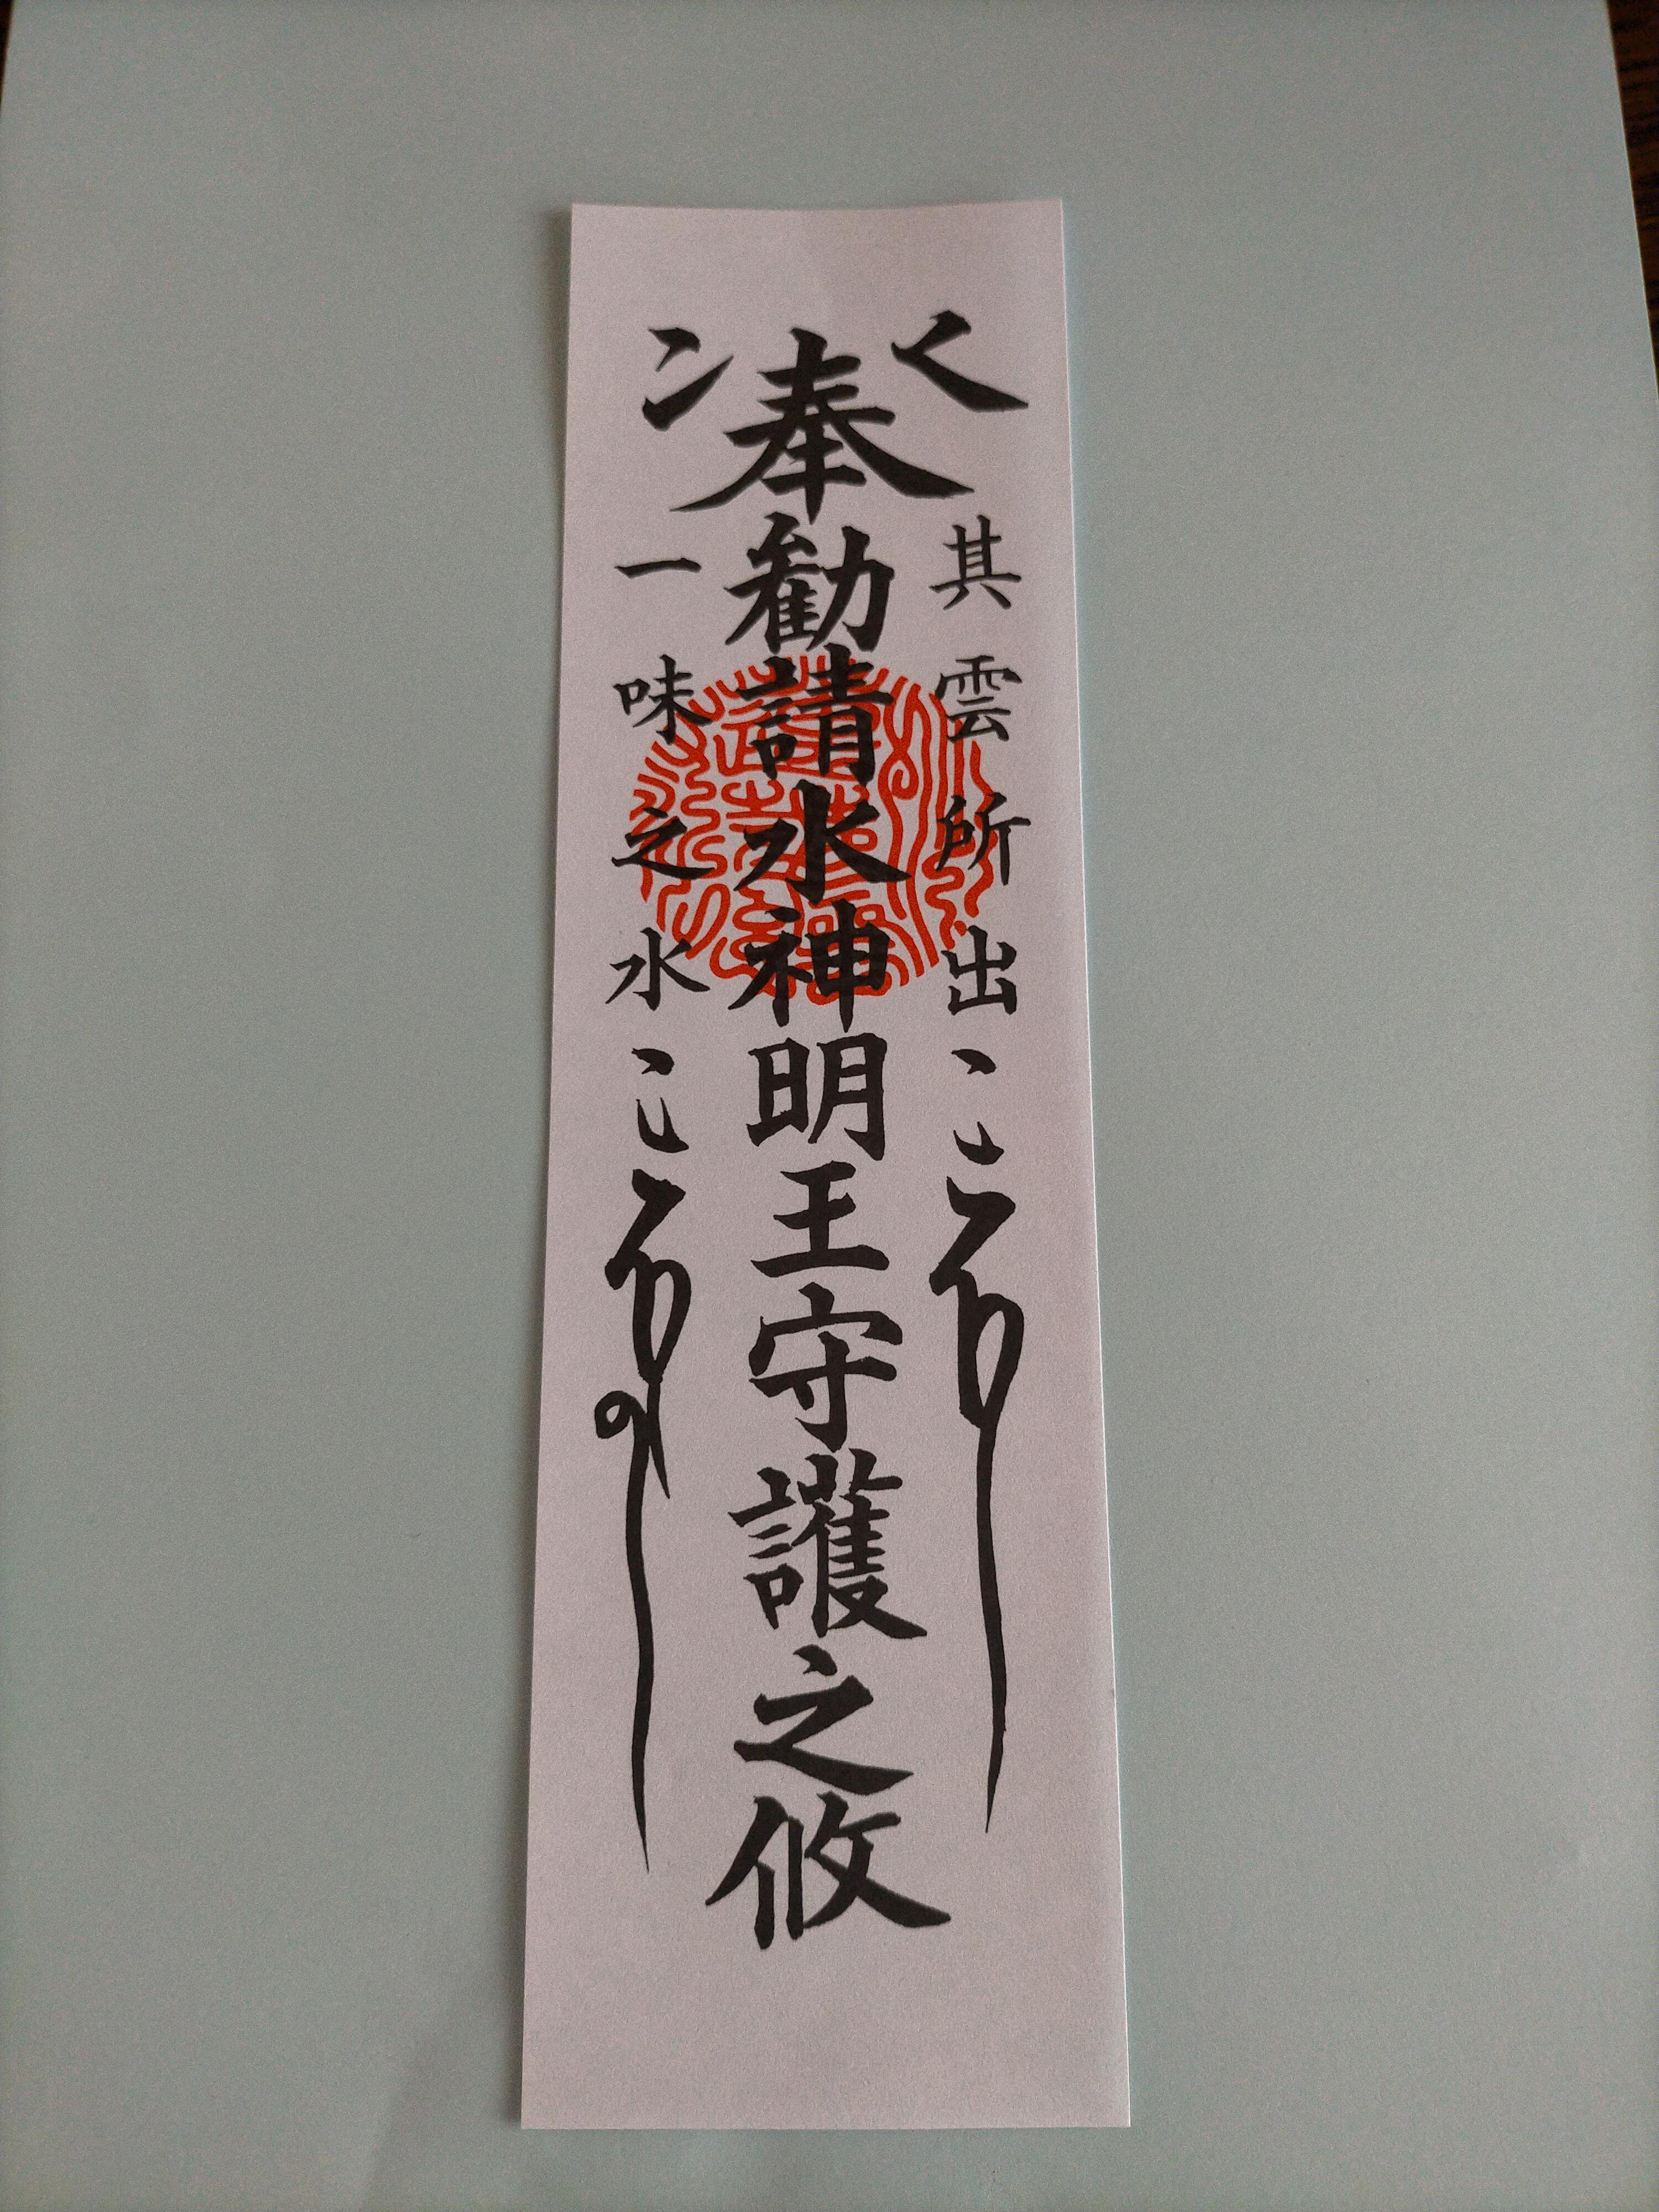 其雲所出
奉勧請水神明王守護之攸
一味之水